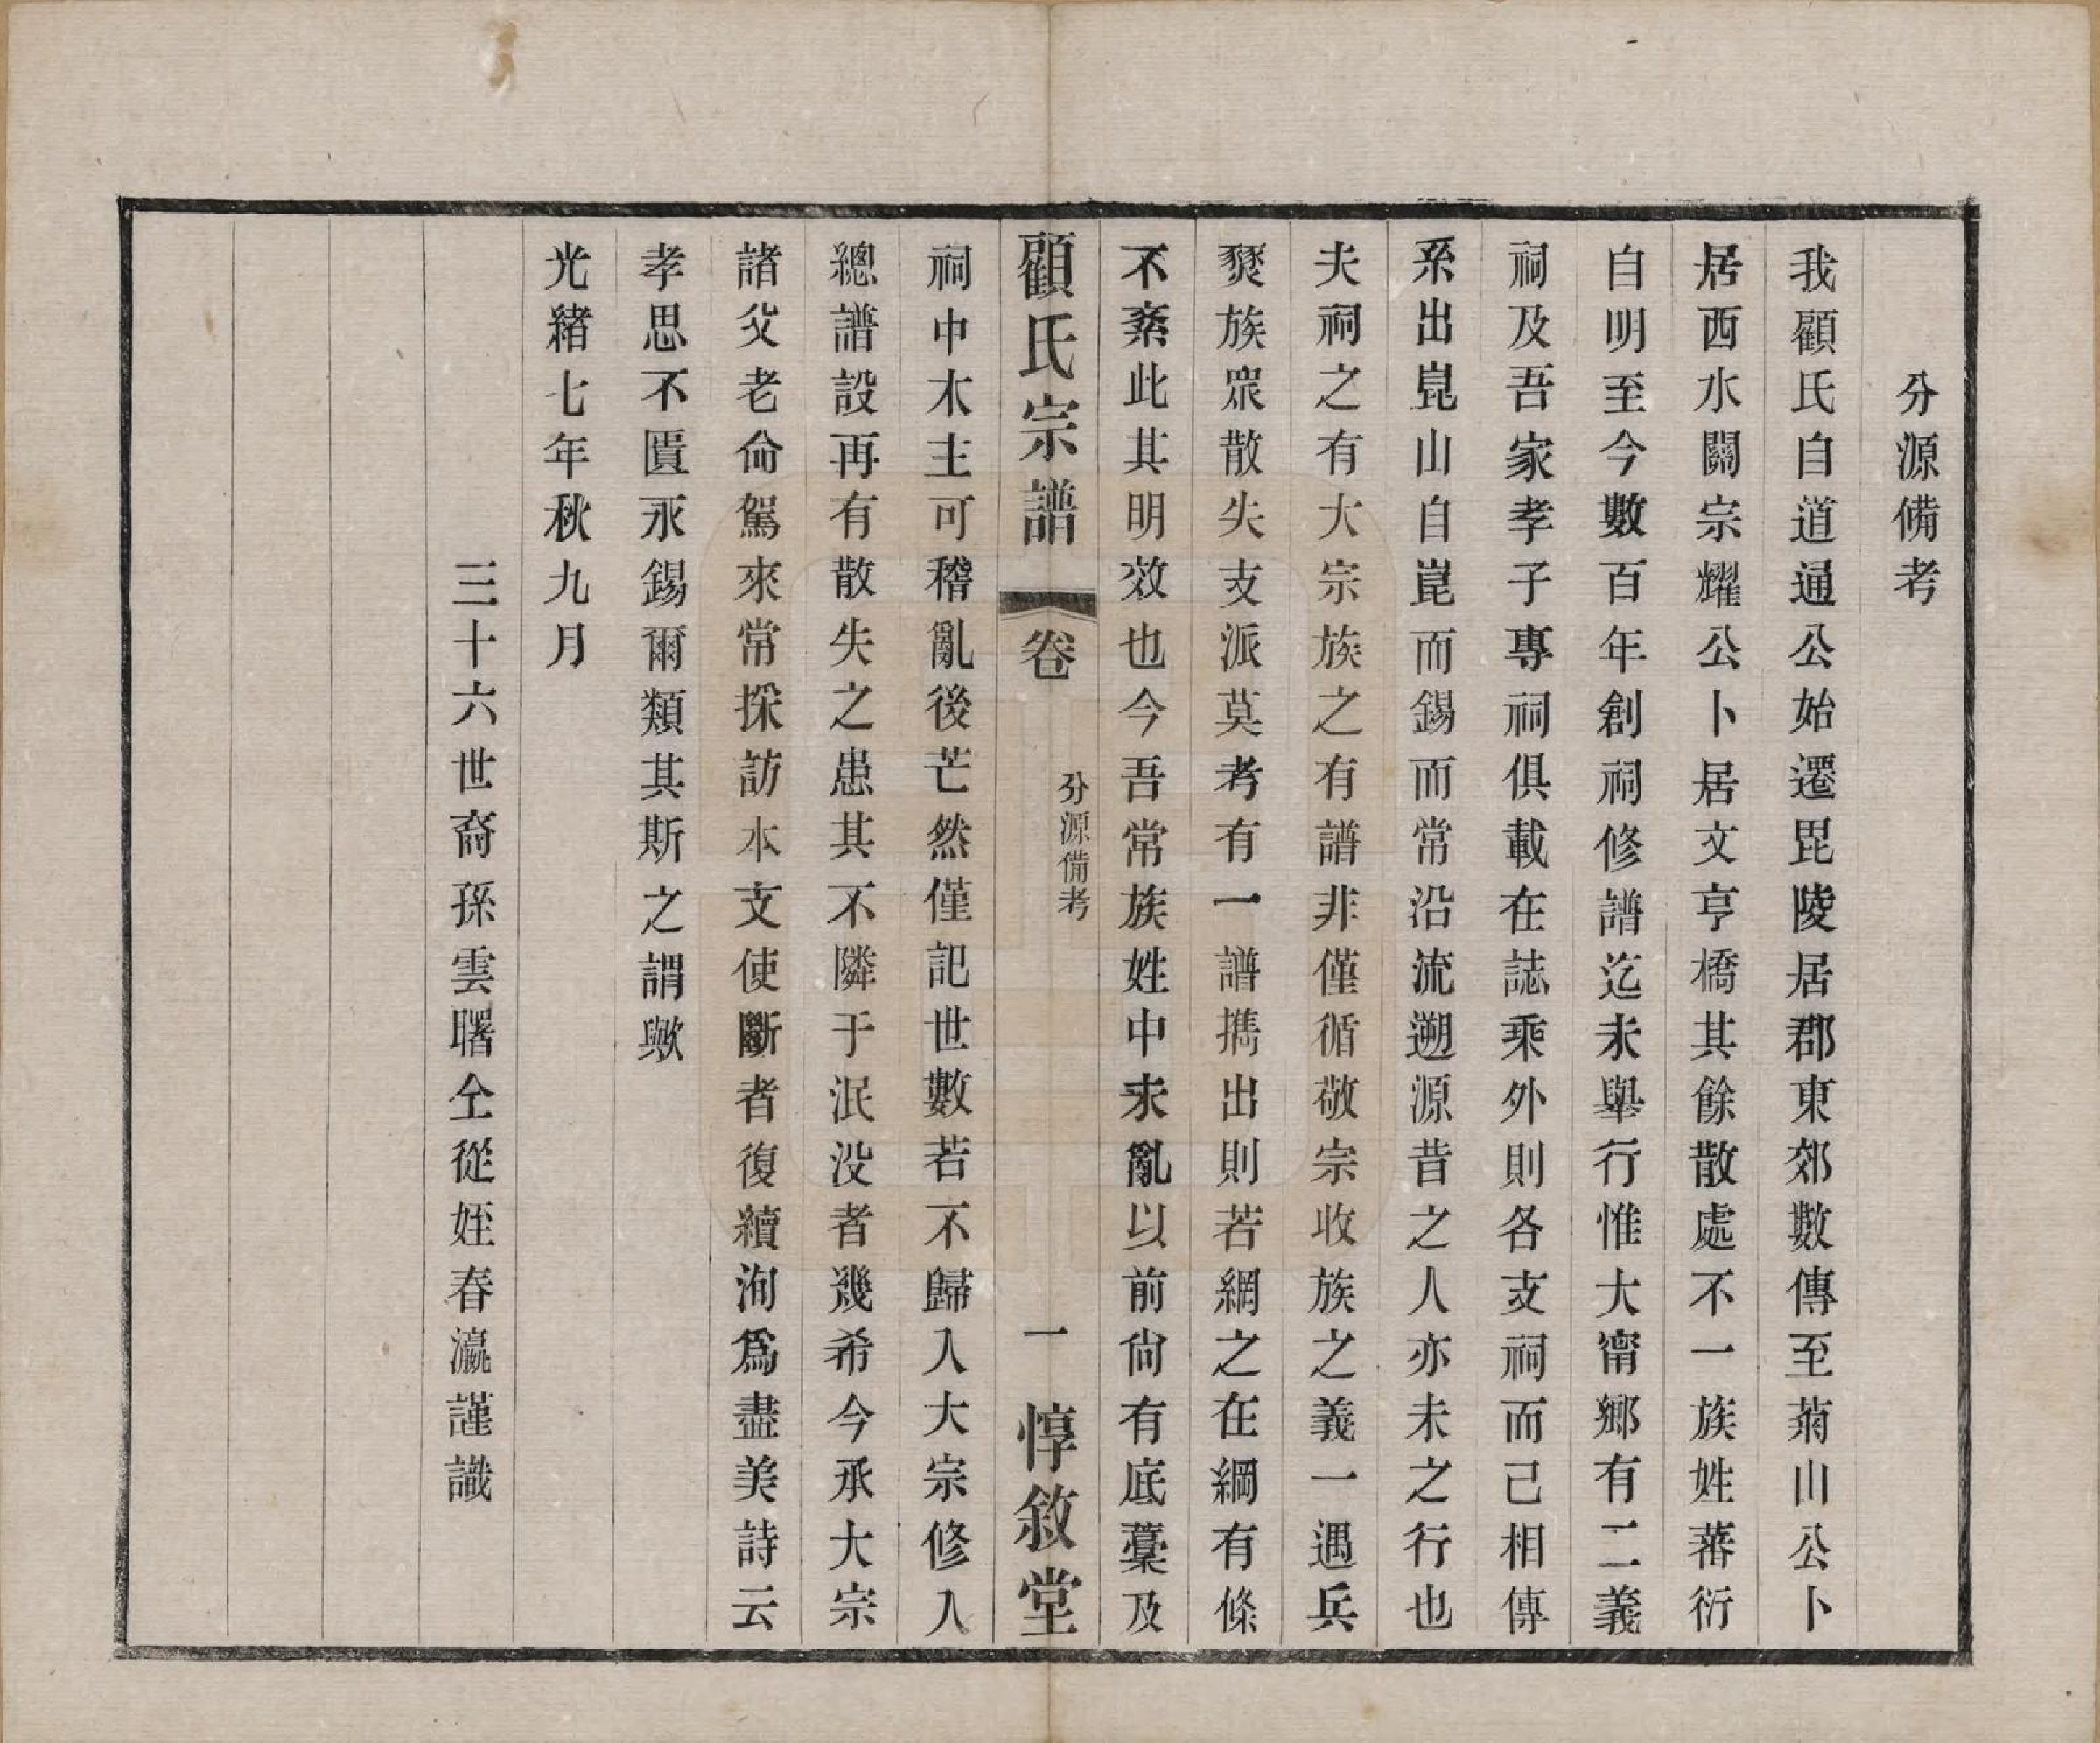 分源備考
我顧氏自道通公始遷毘陵居郡東郊數傳至菊山公卜
居西水關宗耀公卜居文亨橋其餘散處不一族姓蕃衍
自明至今數百年創祠修譜迄未舉行惟大甯鄉有二義
祠及吾家孝子專祠俱載在誌乘外則各支祠而己相傳
系出崑山自崑而錫而常沿流遡源昔之人亦未之行也
夫祠之有大宗族之有譜非僅循敬宗收族之義一遇兵
燹族眾散失支派莫考有一譜攜出則若網之在綱有條
不紊此其明效也今吾常族姓中未亂以前尙有底藁及
顧氏宗譜 卷 分源備考 一 惇敘堂
祠中木主可稽亂後芒然僅記世數若不歸入大宗修入
總譜設再有散失之患其不隣于泯没者幾希今承大宗
諸父老命駕來常採訪本支使斷者復續洵爲盡美詩云
孝思不匱永錫爾類其斯之謂歟
光緒七年秋九月
三十六世裔孫雲曙仝從姪春瀛謹識